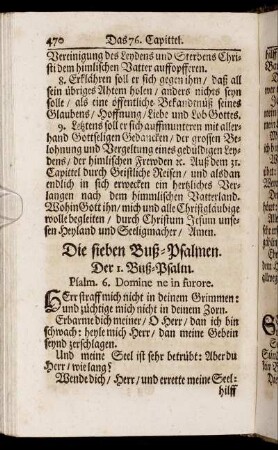 470 Das 76. Capittel.
Vereinigung des Leydens und Sterbens Chri-
sti dem himlischen Vatter auffopfferen.
8. Erklähren soll er sich gegen ihm / daß all
sein übriges Ahtem holen / anders nichts seyn
solle / als eine öffentliche Bekandtnuß seines
Glaubens / Hoffnung / Liebe und Lob Gottes.
9. Letztens soll er sich auffmunteren mit aller-
hand Gottseligen Gedancken / der grossen Be-
lohnung und Vergeltung eines gedüldigen Ley-
dens / der himlischen Frewden ꝛc. Auß dem 31.
Capittel durch Geistliche Reisen / und alsdan
endlich in sich erwecken ein hertzliches Ver-
langen nach dem himmlischen Vatterland.
Wohin Gott ihn / mich und alle Christglaubige
wolle begleiten / durch Christum Jesum unse-
sen Heyland und Seeligmacher / Amen.
Die sieben Buß-Psalmen.
Der 1. Buß-Psalm.
Psalm. 6. Domine ne in furore.
HErr straff mich nicht in deinem Grimmen:
und züchtige mich nicht in deinem Zorn.
Erbarme dich meiner / O Herr / dan ich bin
schwach: heyle mich Herr / dan meine Gebein
seynd zerschlagen.
Und meine Seel ist sehr betrübt: Aber du
Herr / wie lang?
Wende dich / Herr / und errette meine Seel:
hilff